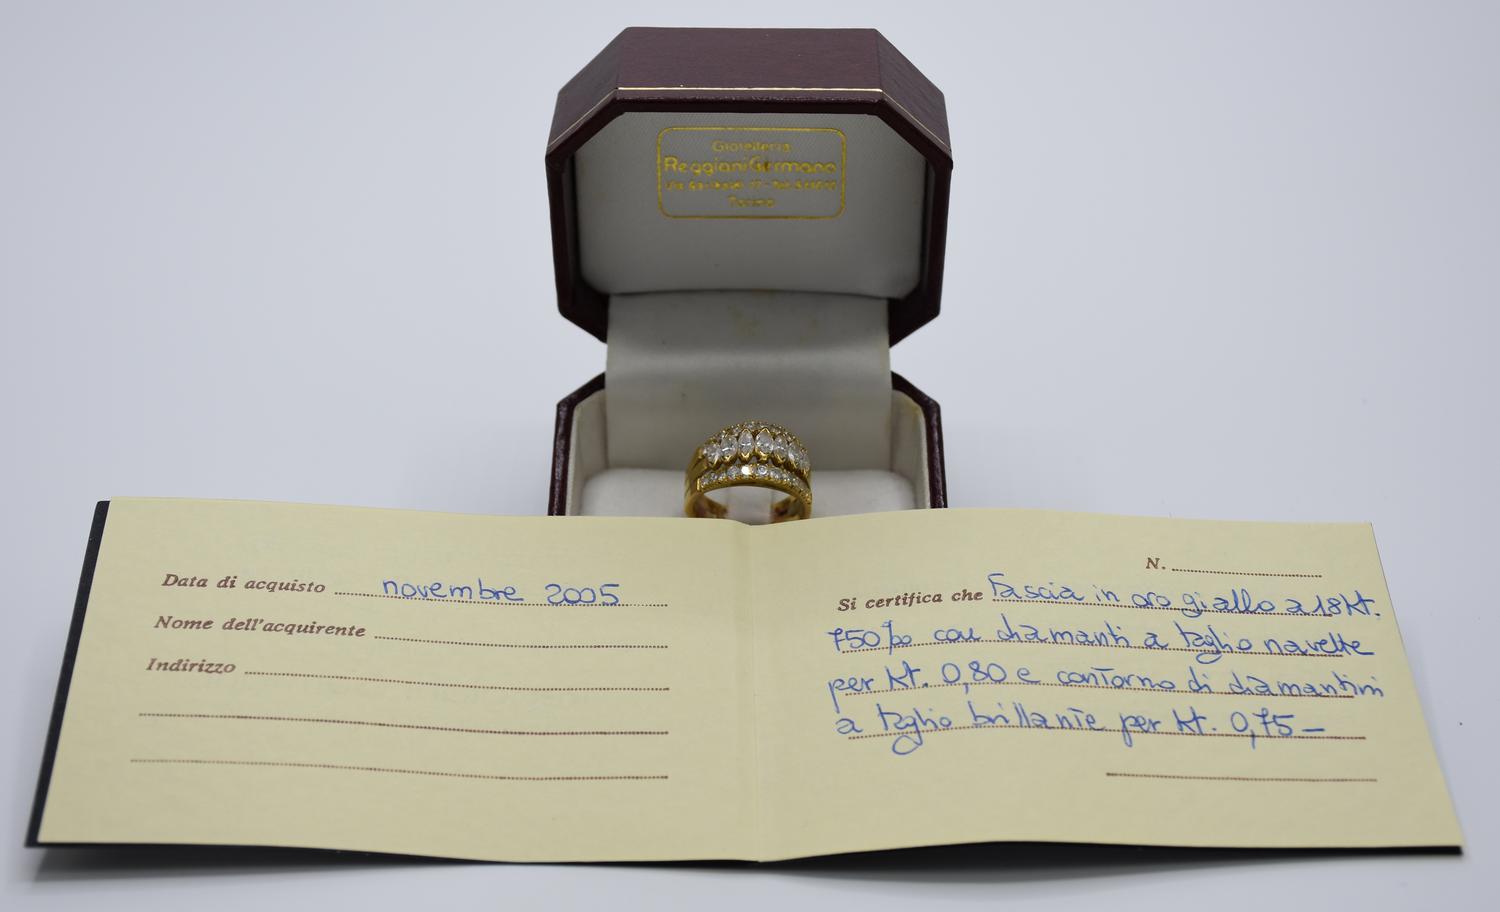 Gioielleria
Reggiani Germano
Torino
Data di acquisto novembre 2005
Nome dell'acquirente
Indirizzo
N.
Si certifica che Fascia in oro giallo a 18 Kt.
750‰ con diamanti a taglio navette
per Kt. 0,80 e contorno di diamantini
a taglio brillante per Kt. 0,75 –